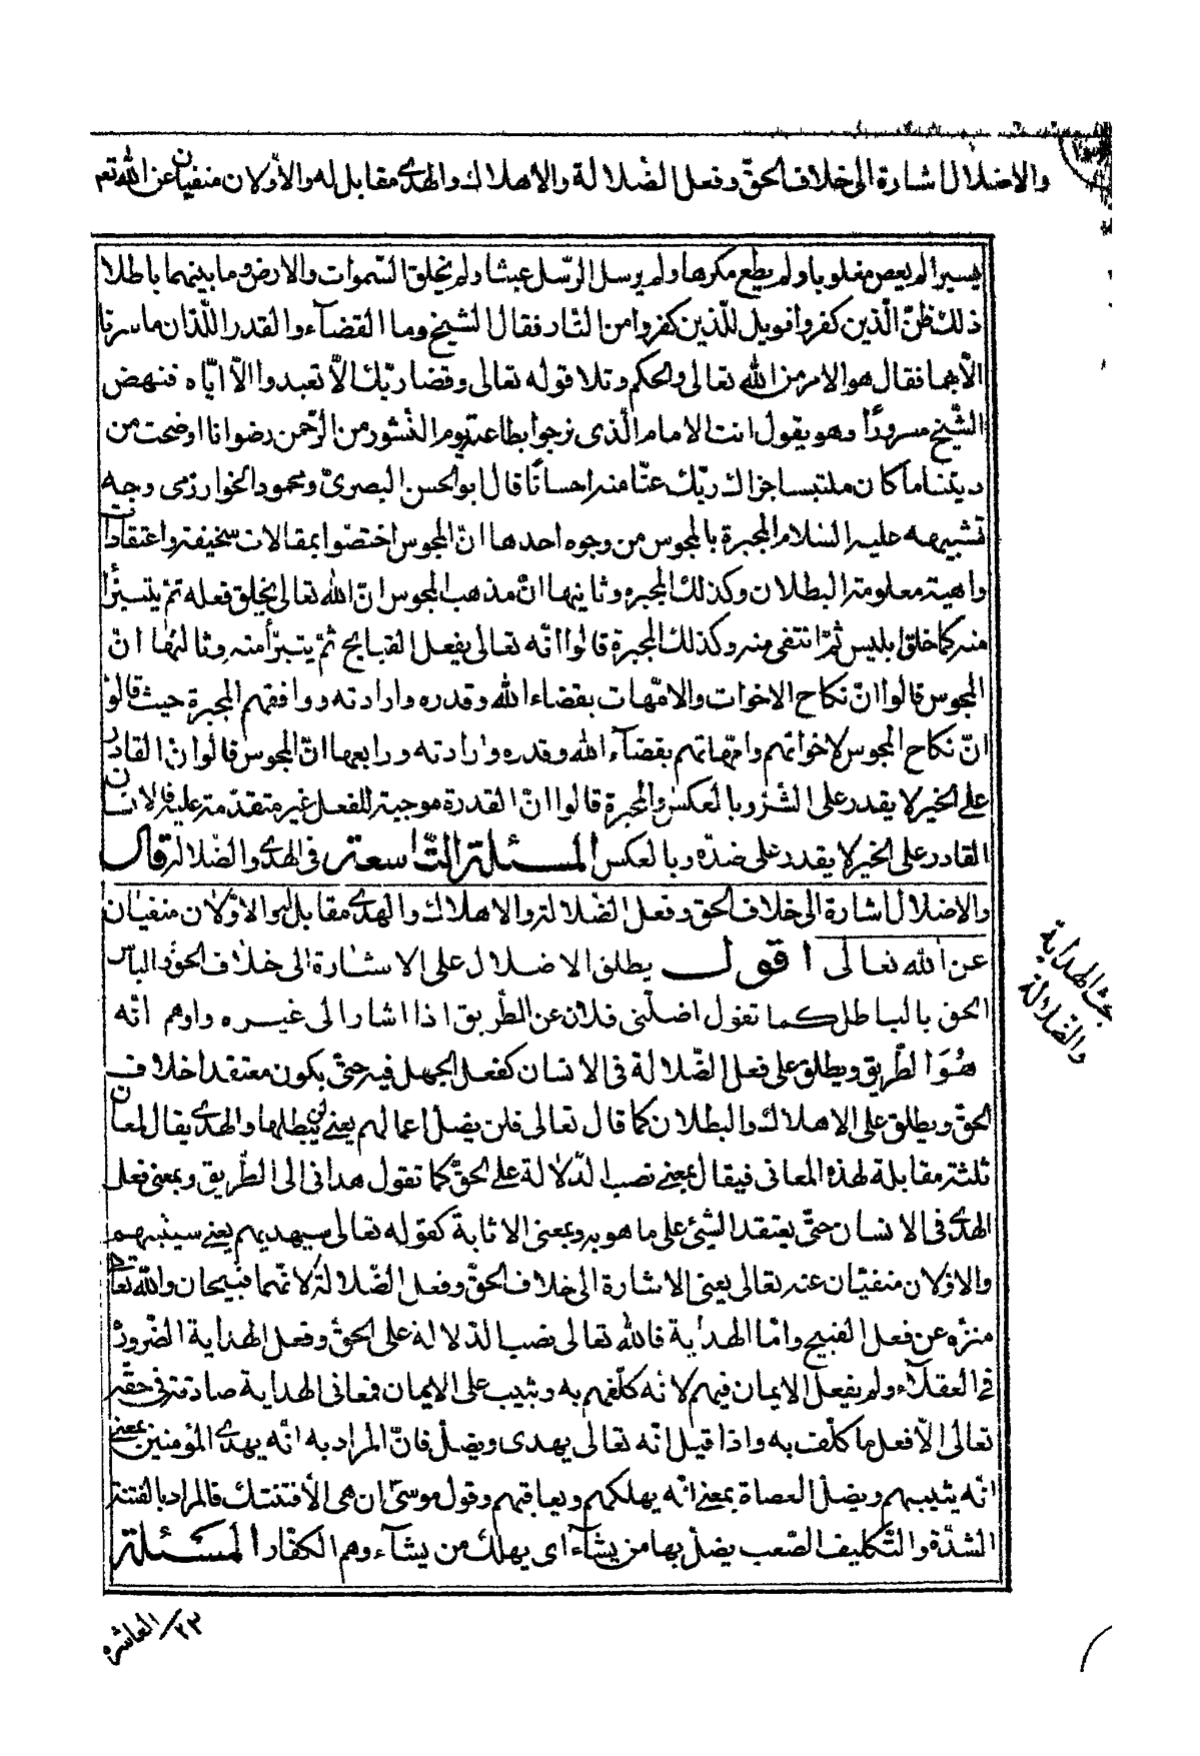 والاضلال اشارة الى خلاف الحقّ وفعل الضّلالة والاهلاك والهدى مقابل له والأوّلان منفيان عن الله تعم
يسيرا لم يعص مغلوبا ولم يطع مكرها ولم يرسل الرّسل عبثا ولم يخلق السّموات والارض وما بينهما باطلا
ذلك ظنّ الّذين كفروا فويل للّذين كفروا من النّار فقال الشيخ وما القضآء والقدر اللّذان ما سرنا
الّا بهما فقال هو الامر من الله تعالى والحكم وتلا قوله تعالى وقضا ربّك الّا تعبدوا الّا ايّاه فنهض
الشّيخ مسرورًا وهو يقول انت الامام الّذى نرجوا بطاعته يوم النّشور من الرّحمن رضوانا اوضحت من
ديننا ما كان ملتبسا جزاك ربّك عنّا منه احسانًا قال ابو الحسن البصرىّ ومحمود الخوارزمى وجه
تشبيهه عليه السّلام المجبرة بالمجوس من وجوه احدها انّ المجوس اختصّوا بمقالات سخيفة واعتقادات
واهية معلومة البطلان وكذلك المجبره وثانيها انّ مذهب المجوس انّ الله تعالى يخلق فعله ثمّ يتبرّأ
منه كما خلق ابليس ثمّ انتفى منه وكذلك المجبرة قالوا انّه تعالى يفعل القبايح ثمّ يتبرّأ منه وثالثها انّ
المجوس قالوا انّ نكاح الاخوات والامّهات بقضاء الله وقدره وارادته ووافقهم المجبرة حيث قالوا
انّ نكاح المجوس لاخواتهم وامّهاتهم بقضآء الله وقدره وارادته ورابعها انّ المجوس قالوا انّ القادر
على الخير لا يقدر على الشّرّ وبالعكس والمجبرة قالوا انّ القدرة موجبة للفعل غير متقدّمة عليه فالانسان
القادر على الخير لا يقدر على ضدّه وبالعكس المسئلة التّاسعة فى الهدى والضّلالة قال
والاضلال اشارة الى خلاف الحق وفعل الضّلالة والاهلاك والهدى مقابل له والاوّلان منفيان
عن الله تعالى اقول يطلق الاضلال على الاشارة الى خلاف الحقّ والباس
الحق بالباطل كما تقول اضلّنى فلان عن الطّريق اذا اشار الى غيره واوهم انّه
هُوَ الطّريق ويطلق على فعل الضّلالة فى الانسان كفعل الجهل فيه حتّى يكون معتقدا خلاف
الحقّ ويطلق على الاهلاك والبطلان كما قال تعالى فلن يضلّ اعمالهم يعنى لن يبطلها والهدى يقال لمعان
ثلثة مقابلة لهذه المعانى فيقال بمعنى نصب الدّلالة على الحقّ كما تقول هدانى الى الطّريق وبمعنى فعل
الهدى فى الانسان حتّى يعتقد الشّئ على ما هو به وبمعنى الاثابة كقوله تعالى سيهديهم يعنى سيثيبهم
والاوّلان منفيّان عنه تعالى يعنى الاشارة الى خلاف الحقّ وفعل الضّلالة لانّهما قبيحان والله تعالى
منزّه عن فعل القبيح وامّا الهداية فالله تعالى نصب الدّلالة على الحقّ وفعل الهداية الضّرورية
فى العقلآء ولم يفعل الايمان فيهم لانه كلّفهم به ويثيب على الايمان فمعانى الهداية صادقة فى حقّه
تعالى الّا فعل ما كلّف به واذا قيل انّه تعالى يهدى ويضلّ فانّ المراد به انّه يهدى المؤمنين بمعنى
انّه يثيبهم ويضلّ العصاة بمعنى انّه يهلكهم ويعاقبهم وقول موسىٰ ان هى الّا فتنتك فالمراد بالفتنة
الشدّة والتّكليف الصّعب يضلّ بها من يشآء اى يهلك من يشآء وهم الكفّار المسئلة
بحث الهداية
والضلالة
٢٣/ العاشره